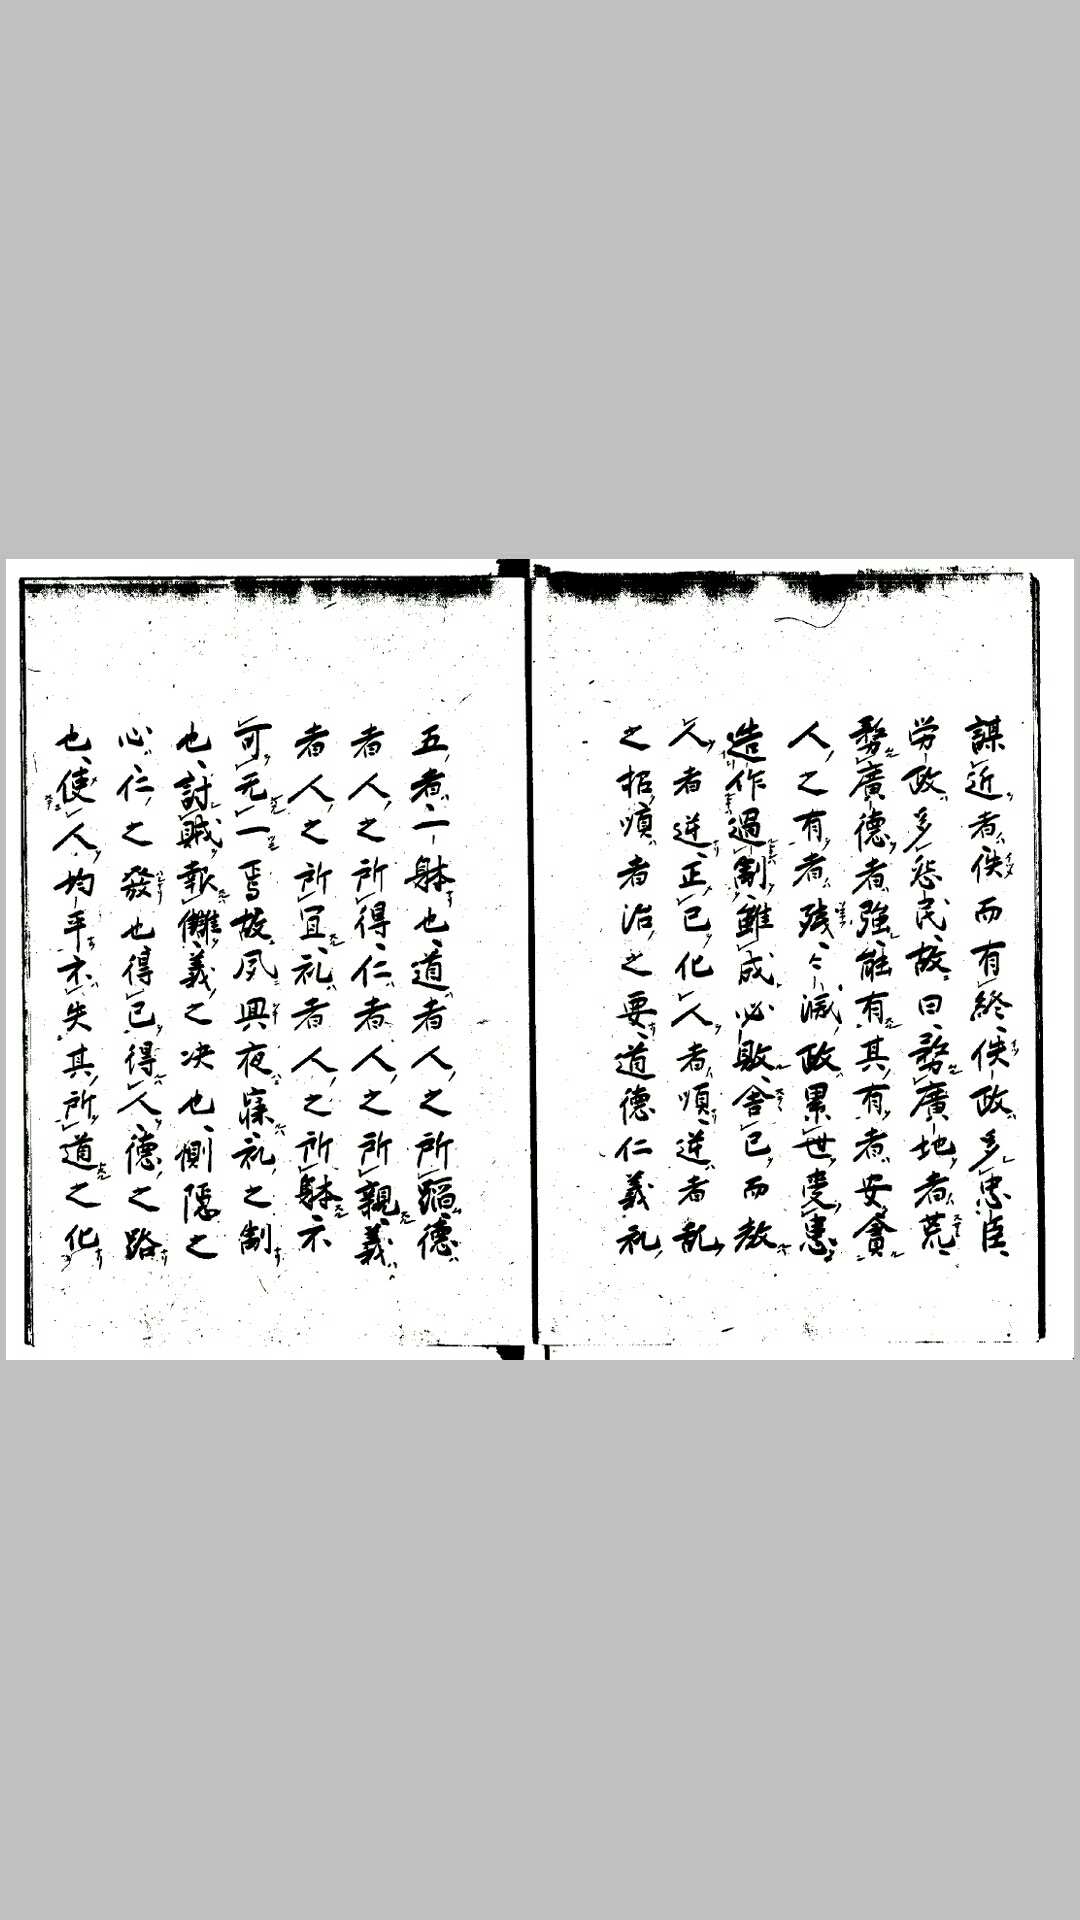 謀近者佚而有終佚政多忠臣
労政多怨民故曰務廣地者荒
務廣德者強能有其有者安貪
人之有者残々滅政累世受患
造作過制雖成必敗舍己而教
人者逆正己化人者順逆者乱
之招順者治之要道德仁義礼
五者一躰也道者人之所蹈德
者人之所得仁者人之所親義
者人之所宜礼者人之所躰不
可无一焉故夙興夜寐礼之制
也討賊報讎義之决也惻隠之
心仁之發也得己得人德之路
也使人均平不失其所道之化